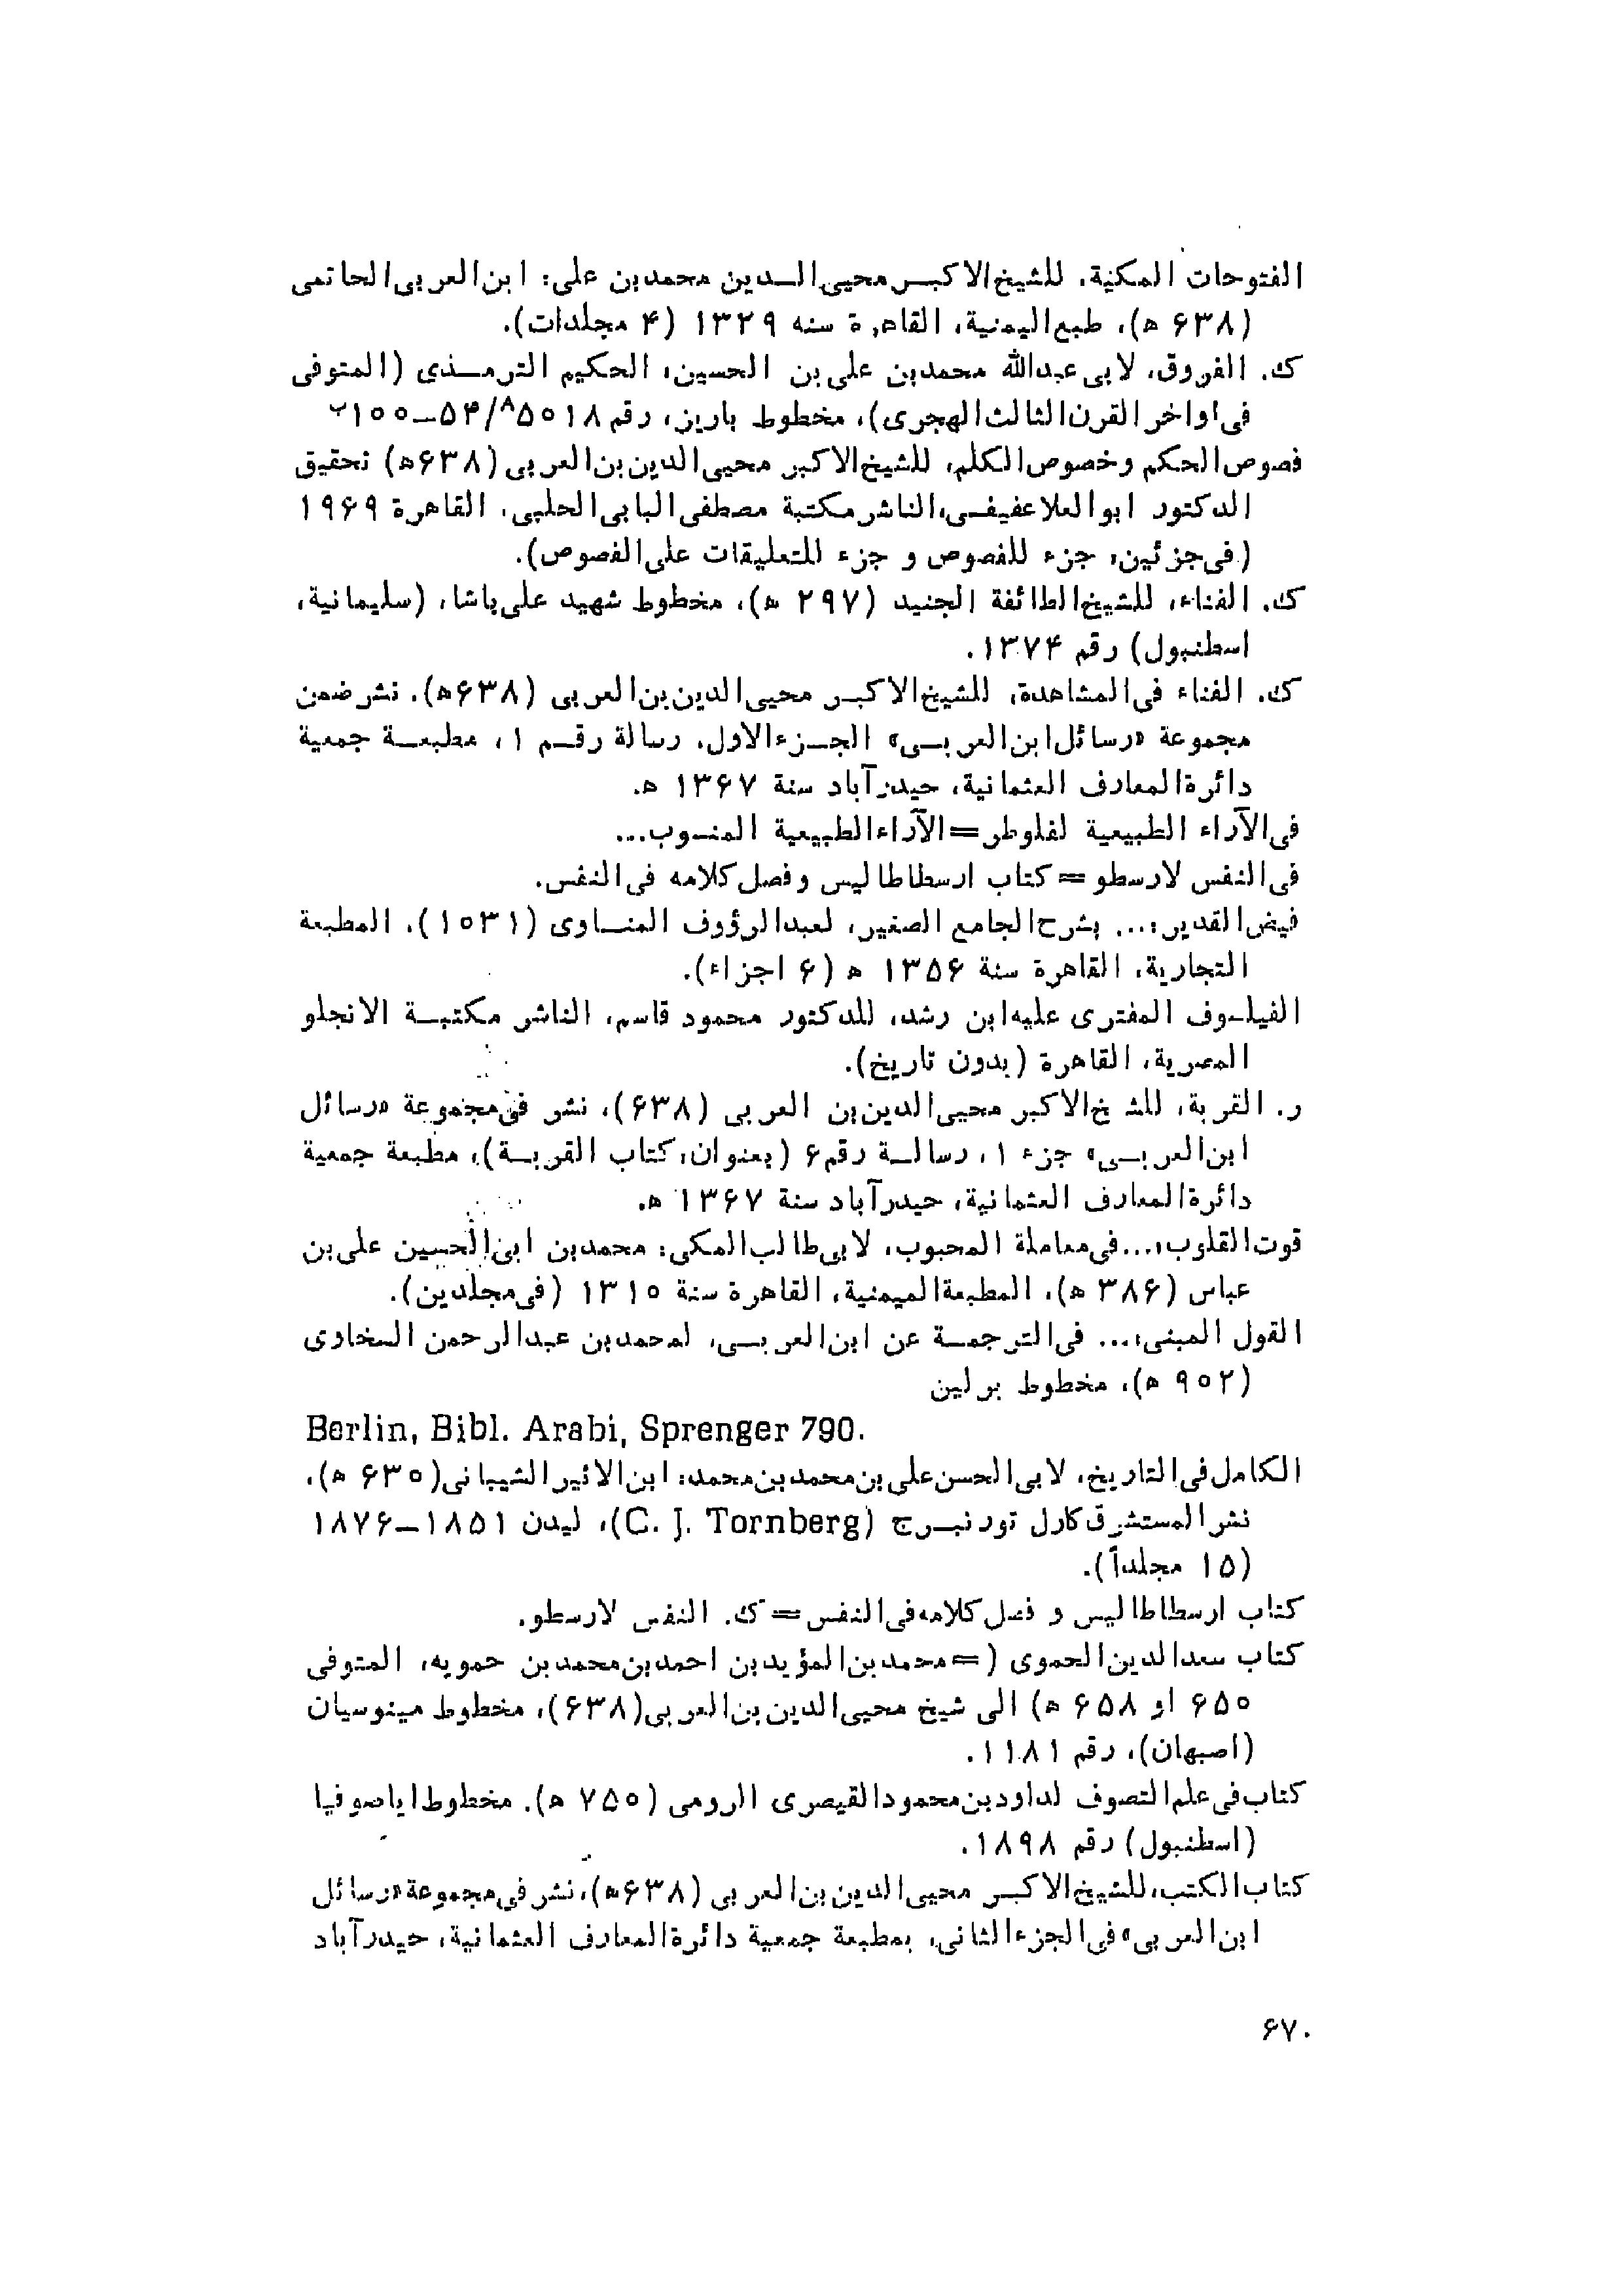 الفتوحات المكية، للشيخ الاكبر محيى الدين محمد بن على: ابن العربى الحاتمى
(۶۳۸ ه)، طبع اليمنية، القاهرة سنه ۱۳۲۹ (۴ مجلدات).
ك. الفروق، لابى عبدالله محمد بن على بن الحسين، الحكيم الترمذى (المتوفى
فى اواخر القرن الثالث الهجرى)، مخطوط باريز، رقم ۵۰۱۸/۵۴–۱۰۰ب
فصوص الحكم وخصوص الكلم، للشيخ الاكبر محيى الدين بن العربى (۶۳۸ه) تحقيق
الدكتور ابو العلا عفيفى، الناشر مكتبة مصطفى البابى الحلبى، القاهرة ۱۹۶۹
(فى جزئين، جزء للفصوص و جزء للتعليقات على الفصوص).
ك. الفناء، للشيخ الطائفة الجنيد (۲۹۷ ه)، مخطوط شهيد على پاشا، (سليمانية،
اسطنبول) رقم ۱۳۷۴.
ك. الفناء فى المشاهدة، للشيخ الاكبر محيى الدين بن العربى (۶۳۸ه). نشر ضمن
مجموعة «رسائل ابن العربى» الجزء الاول، رسالة رقم ۱، مطبعة جمعية
دائرة المعارف العثمانية، حيدرآباد سنة ۱۳۶۷ ه.
فى الآراء الطبيعية لفلوطر=الآراء الطبيعية المنسوب...
فى النفس لارسطو = كتاب ارسطاطاليس و فصل كلامه فى النفس.
فيض القدير،... بشرح الجامع الصغير، لعبدالرؤوف المناوى (۱۰۳۱)، المطبعة
التجارية، القاهرة سنة ۱۳۵۶ ه (۶ اجزاء).
الفيلسوف المفترى عليه ابن رشد، للدكتور محمود قاسم، الناشر مكتبة الانجلو
المصرية، القاهرة (بدون تاريخ).
ر. القربة، للشيخ الاكبر محيى الدين بن العربى (۶۳۸)، نشر فى مجموعة «رسائل
ابن العربى» جزء ۱، رسالة رقم ۶ (بعنوان، كتاب القربة)، مطبعة جمعية
دائرة المعارف العثمانية، حيدرآباد سنة ۱۳۶۷ ه.
قوت القلوب،... فى معاملة المحبوب، لابى طالب المكى: محمد بن ابى الحسين على بن
عباس (۳۸۶ ه)، المطبعة الميمنية، القاهرة سنة ۱۳۱۰ (فى مجلدين).
القول المبنى،... فى الترجمة عن ابن العربى، لمحمد بن عبدالرحمن السخاوى
(۹۰۲ ه)، مخطوط برلين
Berlin, Bibl. Arabi, Sprenger 790.
الكامل فى التاريخ، لابى الحسن على بن محمد بن محمد: ابن الاثير الشيبانى (۶۳۰ ه)،
نشر المستشرق كارل تورنبرج (C. J. Tornberg)، ليدن ۱۸۵۱–۱۸۷۶
(۱۵ مجلداً).
كتاب ارسطاطاليس و فصل كلامه فى النفس = ك. النفس لارسطو.
كتاب سعدالدين الحموى (=محمد بن المؤيد بن احمد بن محمد بن حمويه، المتوفى
۶۵۰ او ۶۵۸ ه) الى شيخ محيى الدين بن العربى (۶۳۸)، مخطوط مينوسيان
(اصبهان)، رقم ۱۱۸۱.
كتاب فى علم التصوف لداود بن محمود القيصرى الرومى (۷۵۰ ه). مخطوط اياصوفيا
(اسطنبول) رقم ۱۸۹۸.
كتاب الكتب، للشيخ الاكبر محيى الدين بن العربى (۶۳۸ه)، نشر فى مجموعة «رسائل
ابن العربى» فى الجزء الثانى، بمطبعة جمعية دائرة المعارف العثمانية، حيدرآباد
۶۷۰